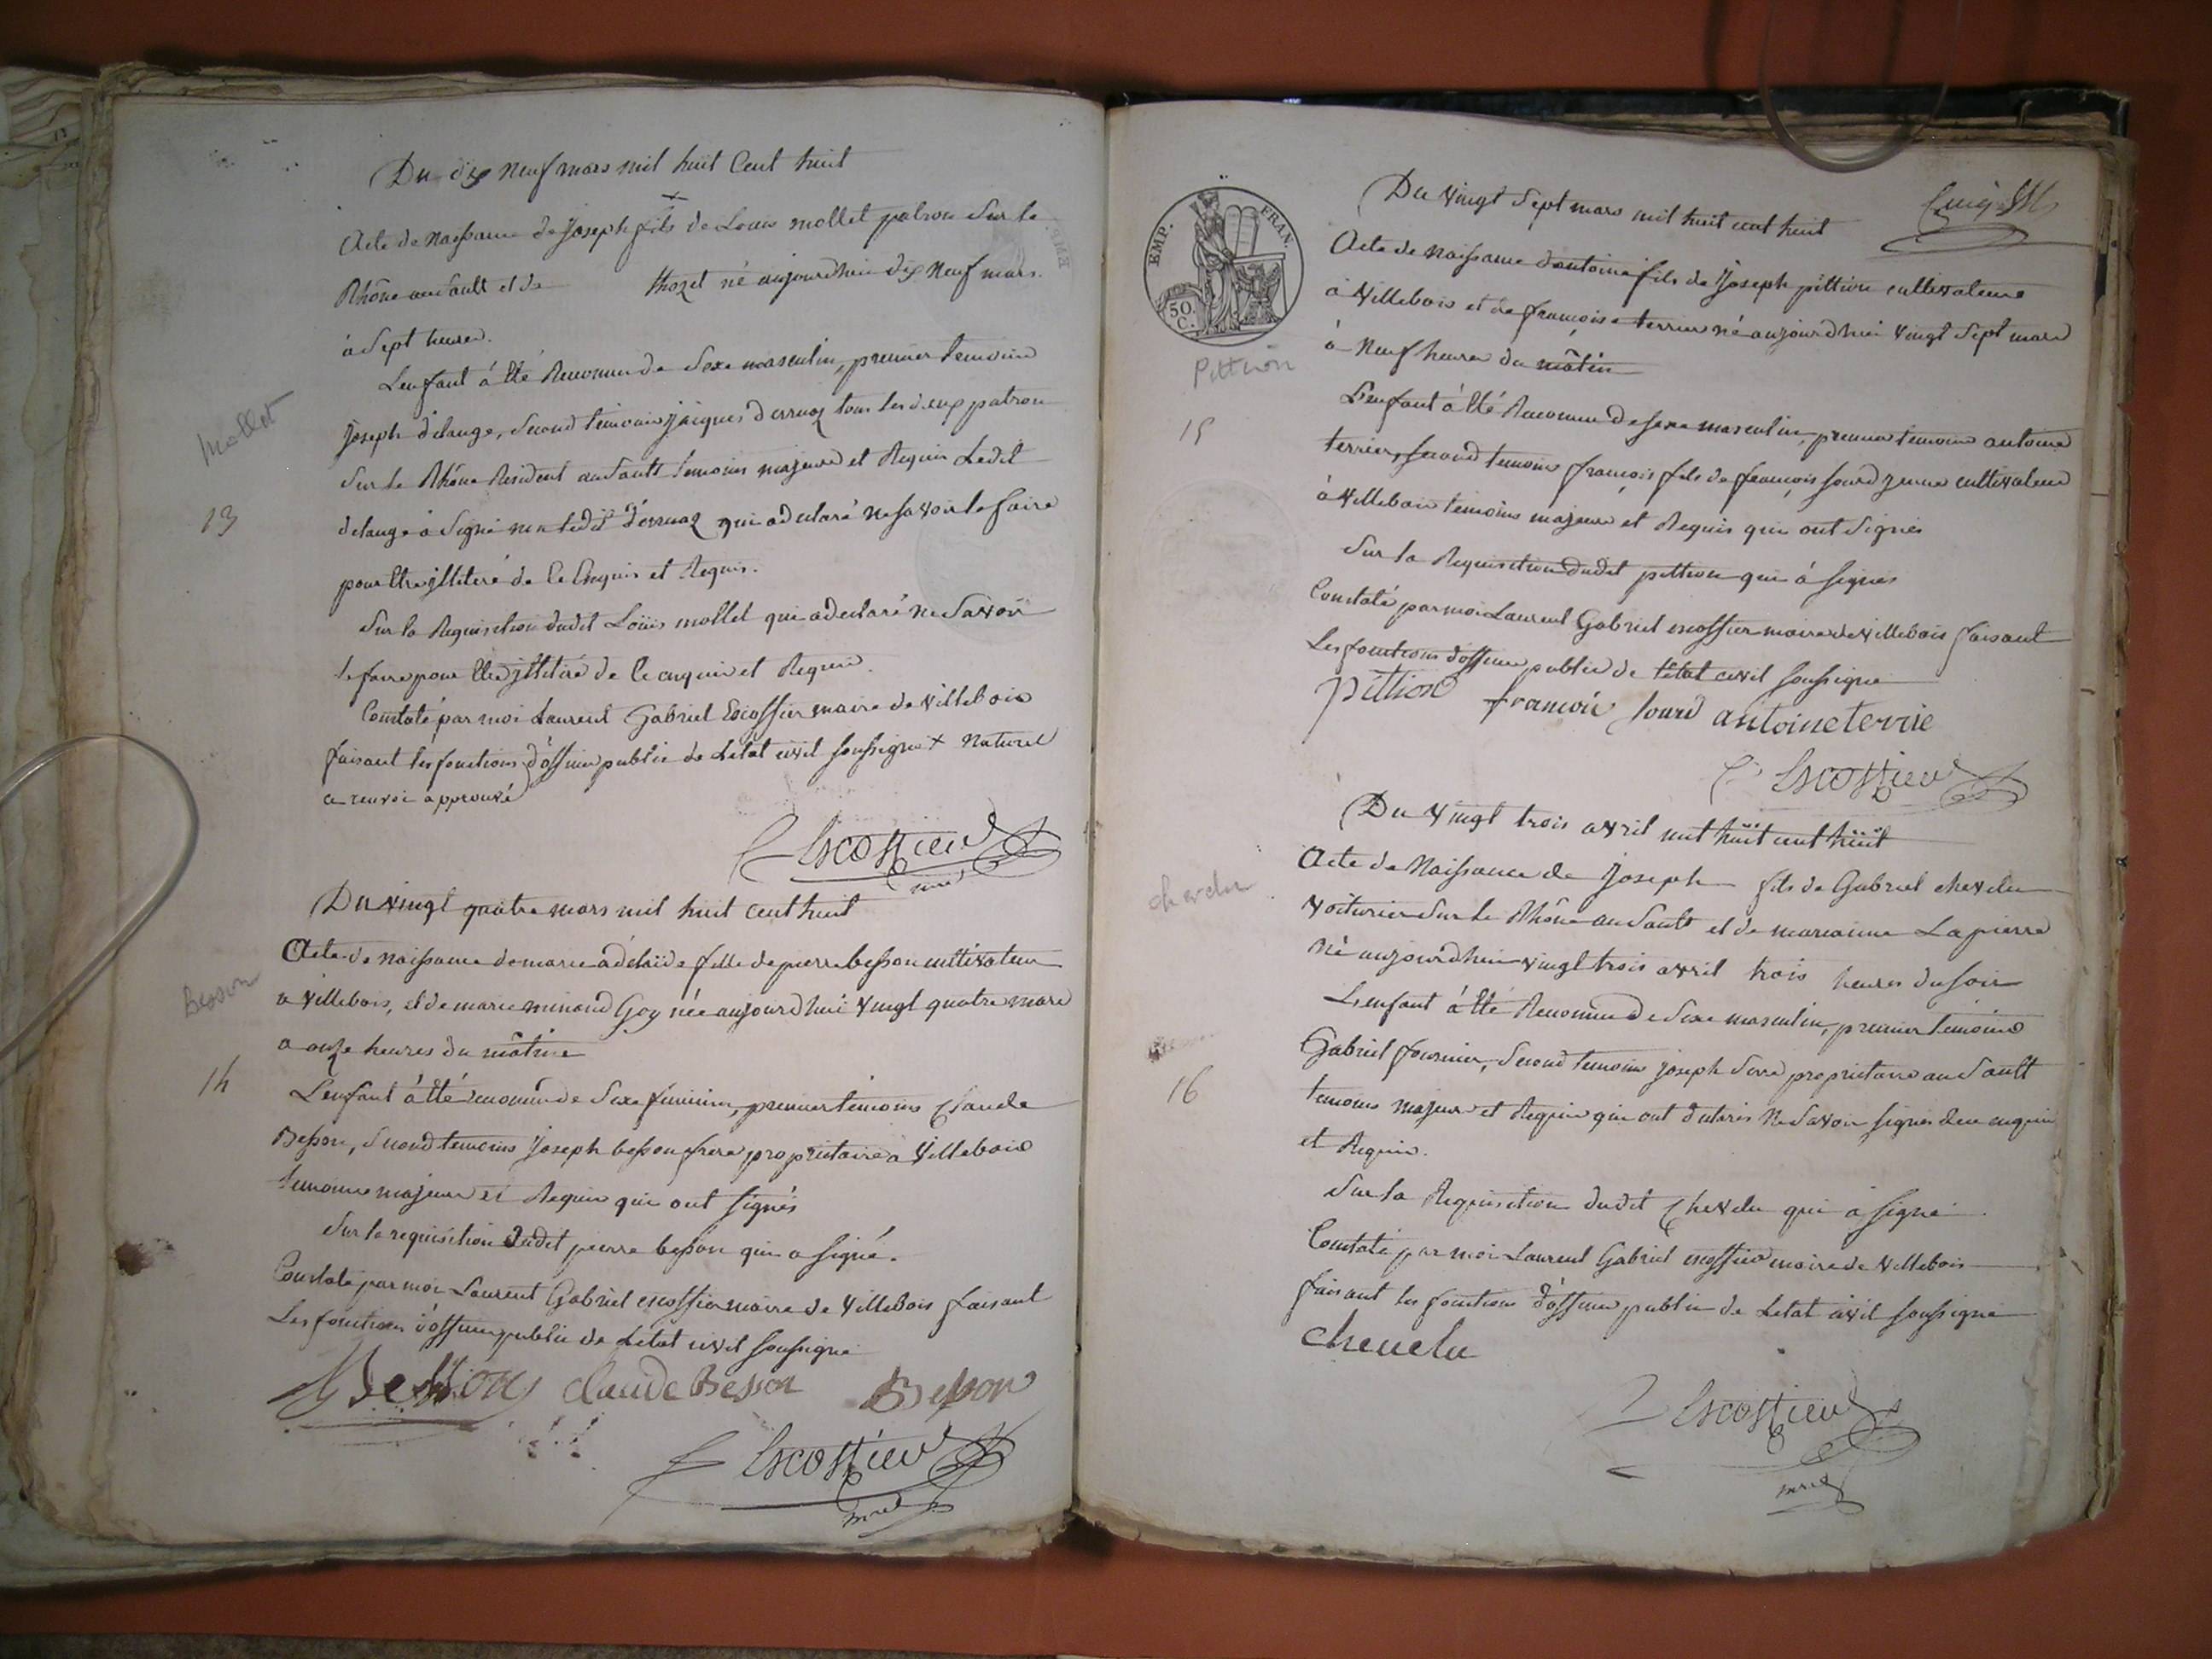 Du dix Neuf mars mil huit Cent huit
+
Acte de Naissance de Joseph fils de Louis mollet patron Sur le
Rhône au Sault et de thozet né aujourdhui dix Neuf mars
à Sept heures.
L'enfant à été Reconnu de Sexe masculin, premier temoin
mollet
joseph délange, Second temoin jâcques derruaz tous les deux patron
Sur le Rhône Resident au Sault temoins majeurs et Requis Ledit
13
delange à Signé non ledit derruaz qui a déclaré ne Savoir le faire
pour être illiteré de ce Enquis et Requis.
Sur la Requisition dudit Loüis mollet qui a déclaré ne Savoir
le faire pour être illiteré de ce enquis et Requis.
Constaté par moi Laurent Gabriel Escoffier maire de Villebois
faisant les fonctions d'officier public de Letat civil soussigné + naturel
ce renvoi approuvé
Escoffier
mre
Du vingt quatre mars mil huit cent huit
Acte de naissance de marie adélaïde fille de pierre besson cultivateur
Besson
a Villebois, et de marie minand Goy née aujourd'hui Vingt quatre mars
a onze heures du mâtin
14
L'enfant à été reconnu de Sexe feminin, premier témoins Claude
Besson, Second temoins Joseph besson frere proprietaire a Villebois
temoins majeurs et Requis qui ont signés
Sur la requisition dudit pierre besson qui a signé.
Constaté par moi Laurent Gabriel escoffier maire de Villebois faisant
Les fonctions d'officier public de Letat civil soussigné
Besson Claude Besson Besson
Escoffier
mre
EMP. FRAN.
50 C.
Du Vingt Sept mars mil huit cent huit
Acte de naissance d'antoine fils de Joseph pittion cultivateur
à Villebois et de françoise terrier né aujourd'hui Vingt Sept mars
à Neuf heures du mâtin
Pittion
L'enfant à été Reconnu de sexe masculin, premier temoin antoine
15
terrier, second temoins françois fils de françois sourd jeune cultivateur
à Villebois temoins majeurs et Requis qui ont Signés
Sur la Requisition dudit pittion qui à signés
Constaté par moi Laurent Gabriel escoffier maire de Villebois faisant
Les fonctions d'officier public de Létat civil soussigné
pittion françois sourd antoine terrie
Escoffier
Du Vingt trois avril mil huit cent hüit
Acte de Naissance de Joseph fils de Gabriel chevelu
chevelu
Voiturier Sur le Rhône au Sault et de marianne Lapierre
Né aujourdhui vingt trois avril trois heures du soir
L'enfant à été Reconnu de Sexe masculin, premier temoins
Gabriel fournier, Second temoins joseph Serre proprietaire au Sault
16
temoins majeurs et Requis qui ont d'clarés Ne Savoir signés de ce enquis
et Requis.
Sur la Requisition dudit Chevelu qui à signé.
Constaté par moi Laurent Gabriel escoffier maire de Villebois
faisant les fonctions d'officier public de Letat civil soussigné
cheuelu
Escoffier
mre